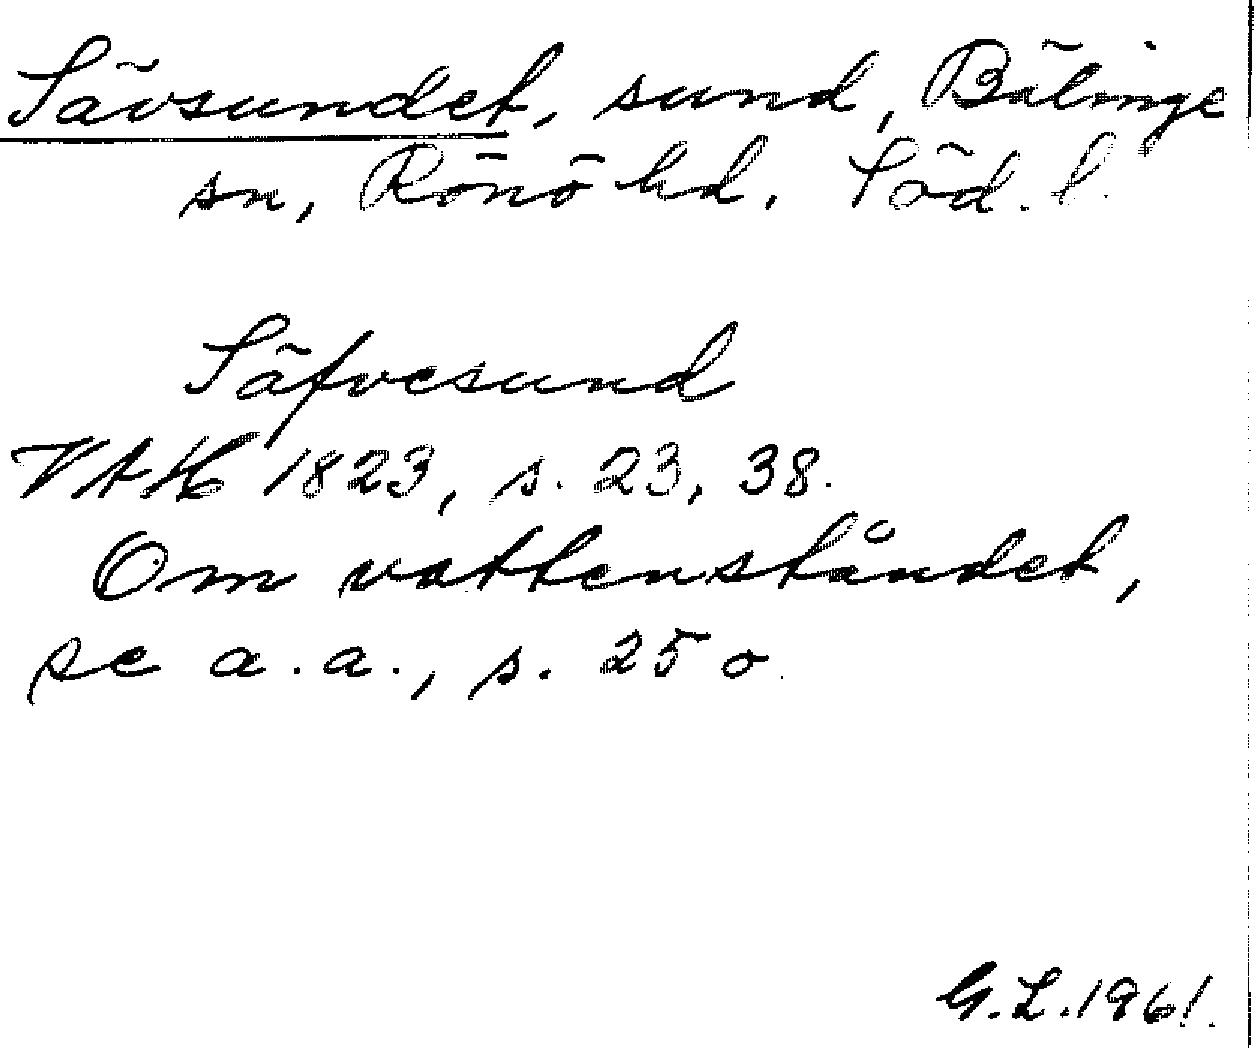 Sävsundet, sund, Bälinge
sn, Rönö hd. Söd. l.
Säfvesund
VAH 1823, s. 23, 38.
Om vattenståndet,
se a.a., s. 25 o
G.L. 1961.